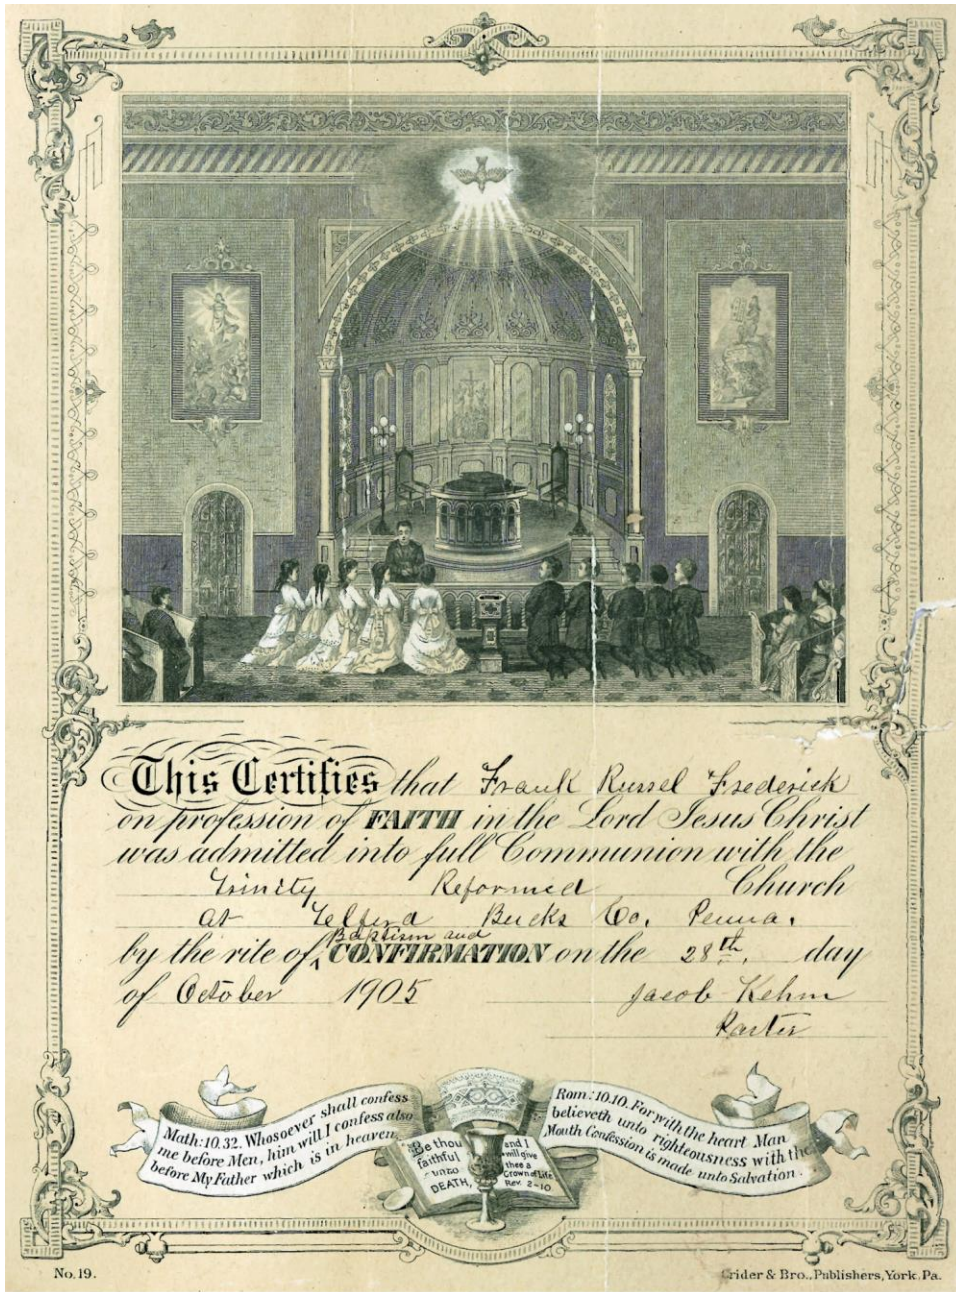 This Certifies that Frank Russel Frederick
on profession of FAITH in the Lord Jesus Christ
was admitted into full Communion with the
Trinity Reformed Church
at Telford Bucks Co. Penna.
Baptism and
by the rite of, CONFIRMATION on the 28th. day
of October 1905 Jacob Kehm
Pastor
Math: 10.32. Whosoever shall confess
me before Men, him will I confess also
before My Father which is in heaven.
Be thou
faithful
unto
DEATH,
and I
will give
thee a
Crown of Life
Rev. 2-10
Rom: 10.10. For with the heart Man
believeth unto righteousness with the
Mouth Confession is made unto Salvation.
No. 19.
Crider & Bro., Publishers, York, Pa.